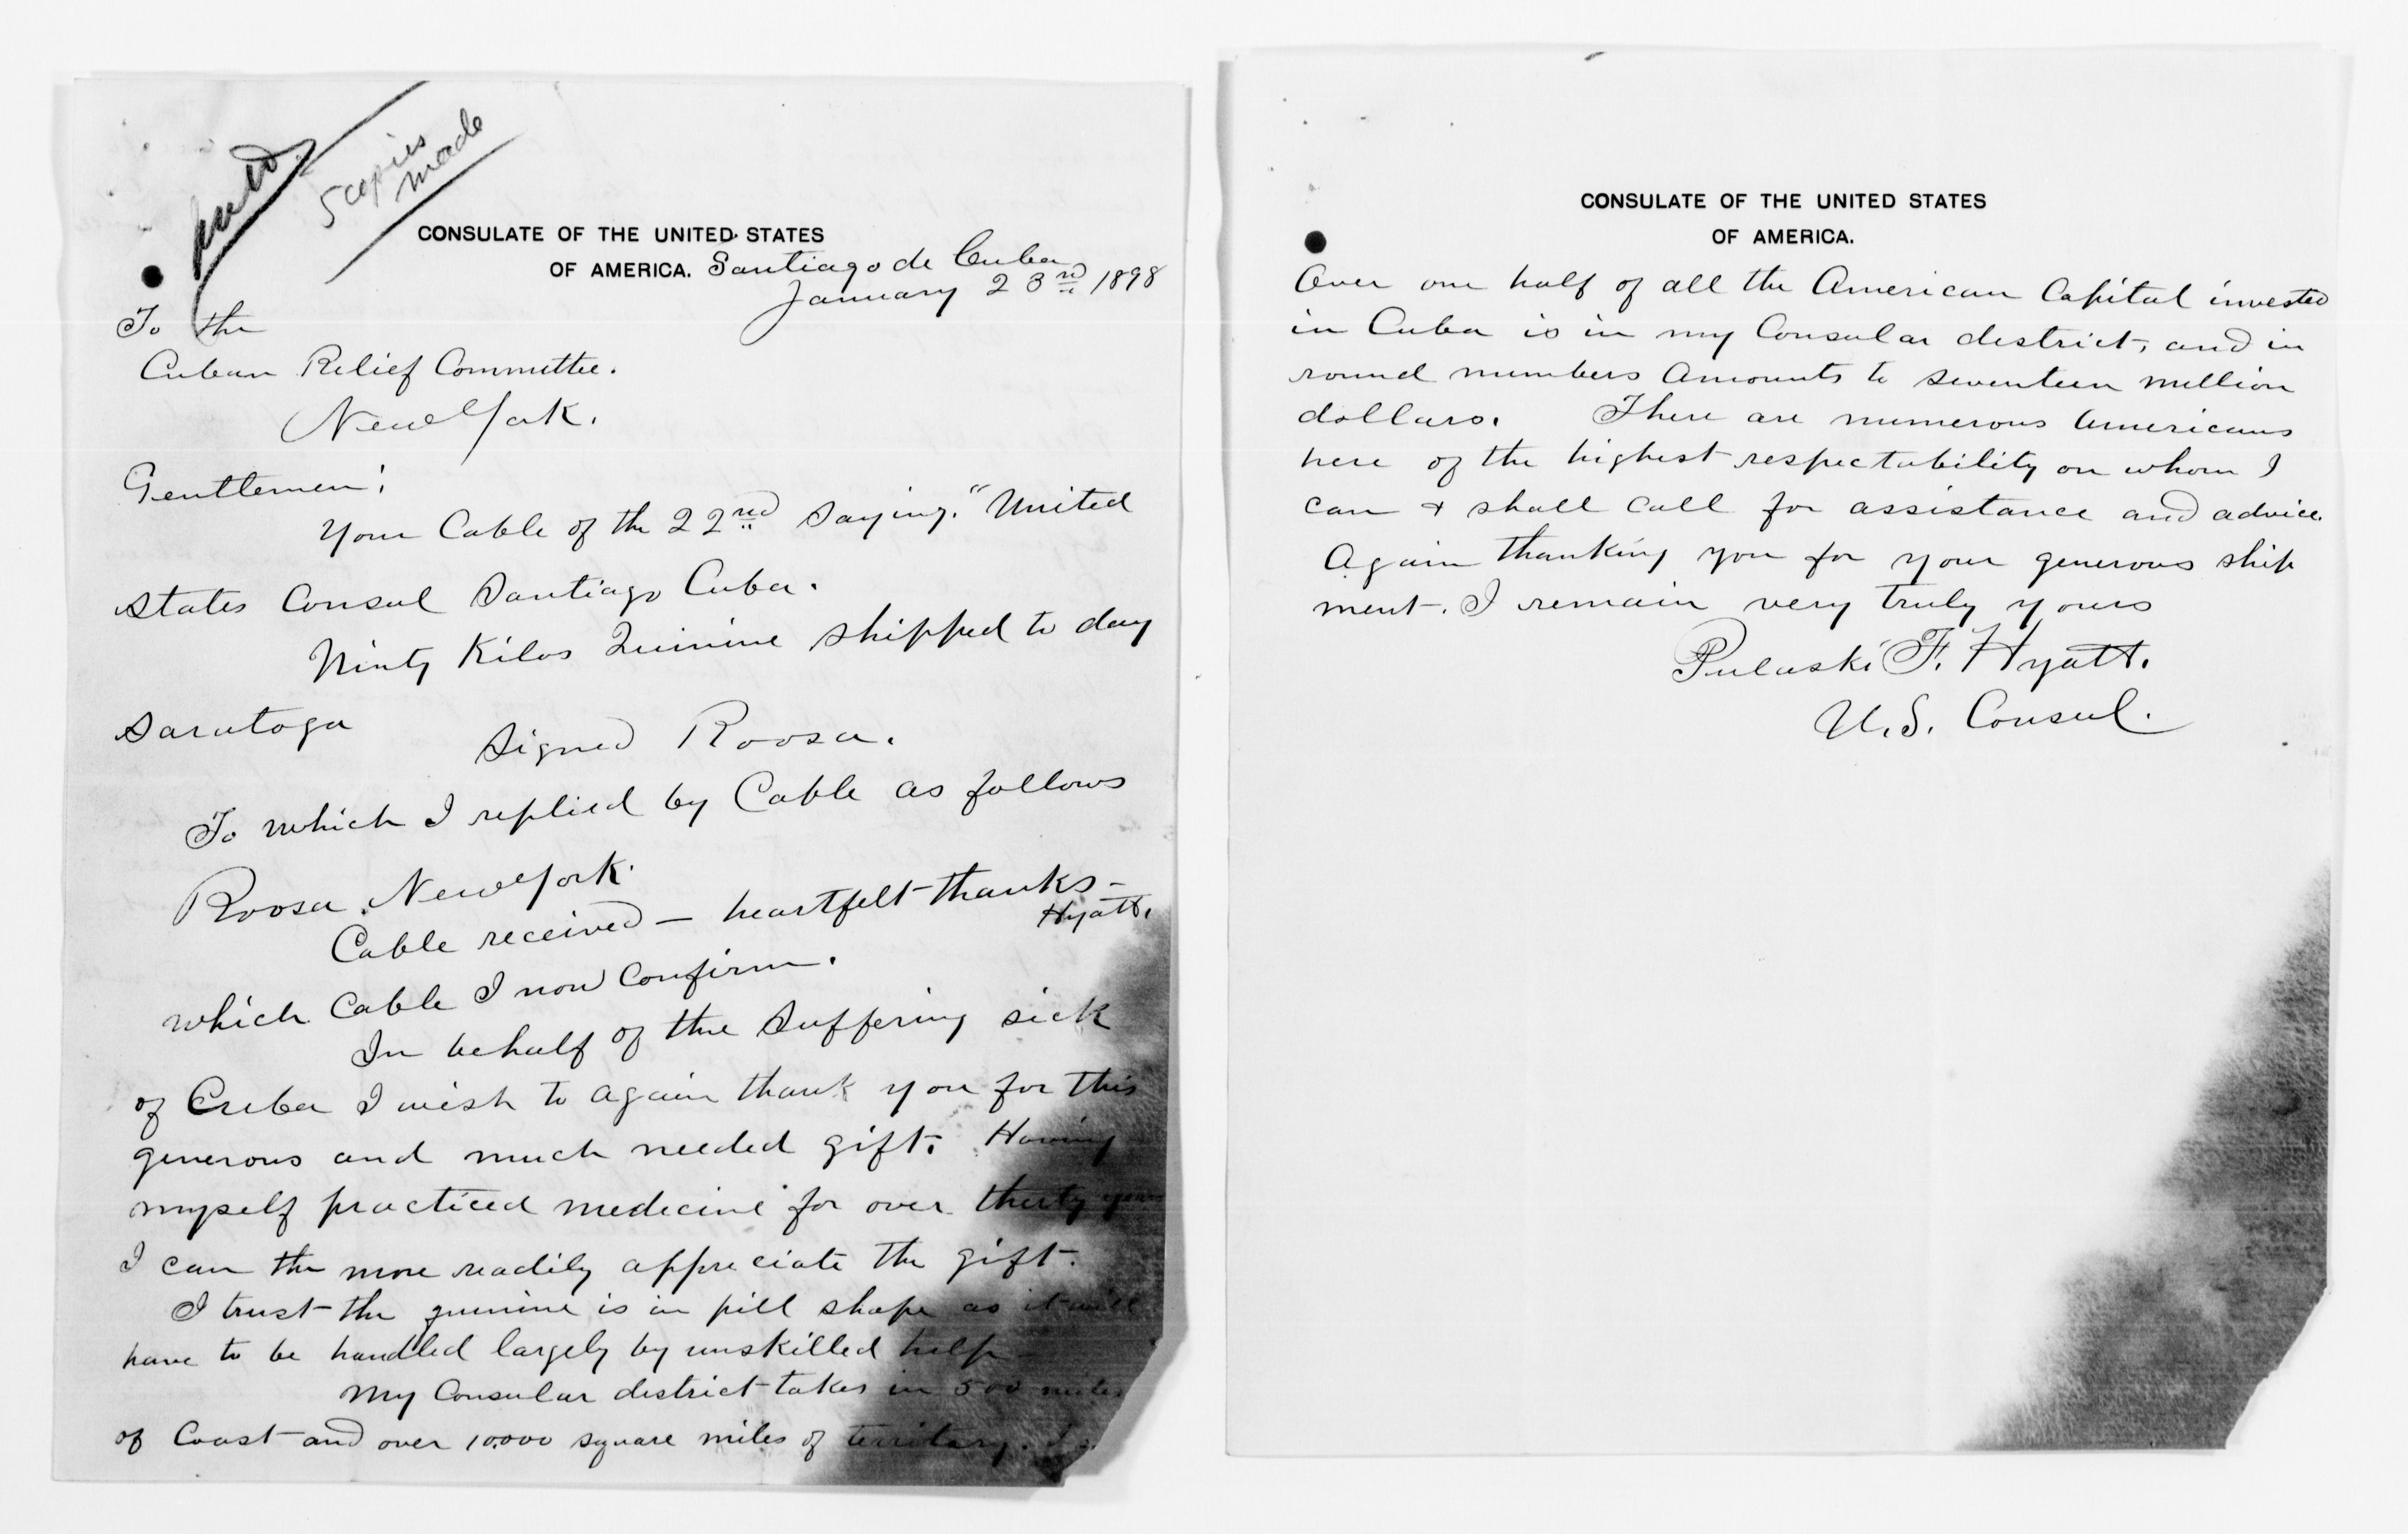 5 copies
made
CONSULATE OF THE UNITED STATES
OF AMERICA. Santiago de Cuba
January 23rd 1898
To the
Cuban Relief Committee.
New York.
Gentlemen;
Your Cable of the 22nd saying. "United
States Consul Santiago Cuba.
Ninty Kilos Quinine shipped to day
Saratoga
Signed Roosa.
To which I replied by Cable as follows
Roosa New York.
Cable received — heartfelt thanks —
Hyatt.
which Cable I now confirm.
In behalf of the suffering sick
of Cuba I wish to again thank you for this
generous and much needed gift. Having
myself practiced medicine for over thirty years
I can the more readily appreciate the gift.
I trust the quinine is in pill shape as it will
have to be handled largely by unskilled help —
My Consular district takes in 500 miles
of Coast and over 10.000 square miles of territory.
CONSULATE OF THE UNITED STATES
OF AMERICA.
Over one half of all the American Capital invested
in Cuba is in my Consular district, and in
round numbers Amounts to seventeen million
dollars. There are numerous Americans
here of the highest respectability on whom I
can & shall call for assistance and advice.
Again thanking you for your generous ship
ment. I remain very truly yours
Pulaski F. Hyatt.
U.S. Consul.